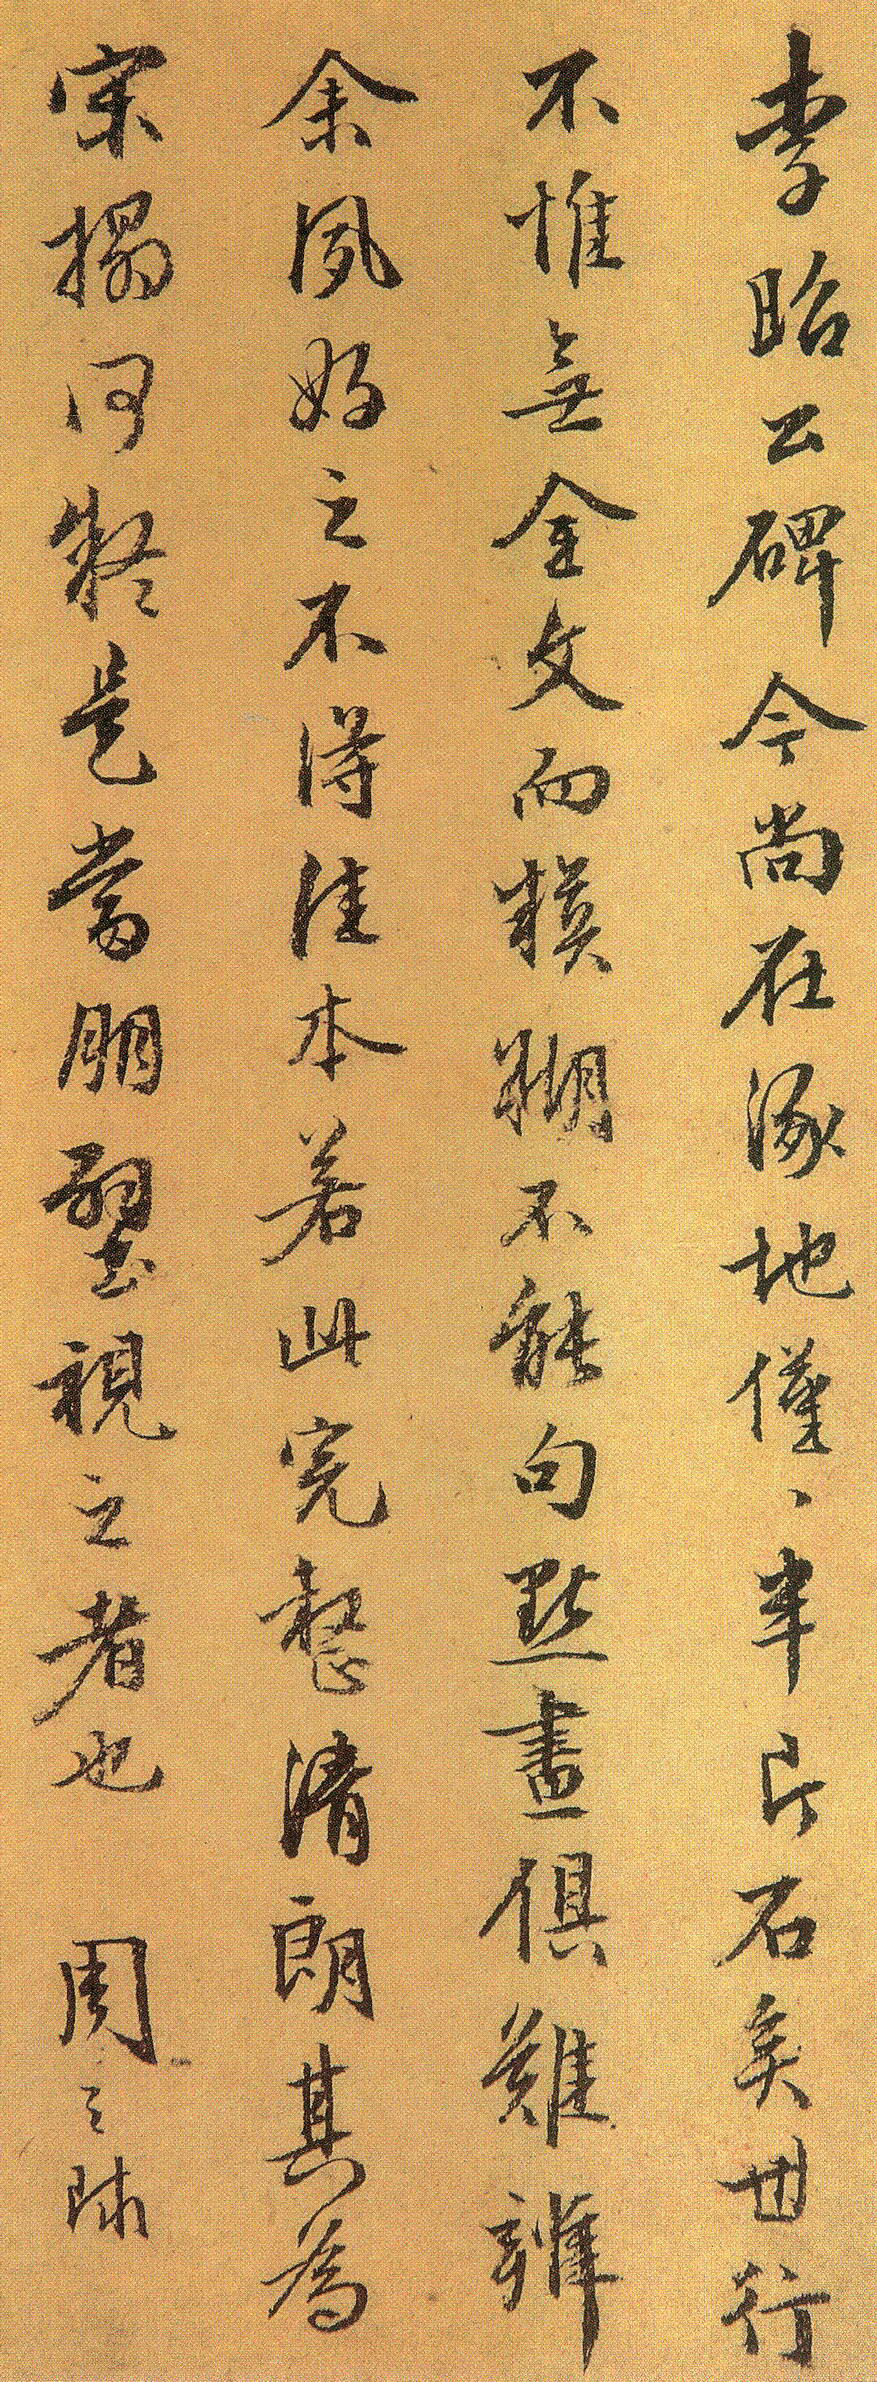 李昭公碑今尚在涿地僅、半片石矣世行
不惟無全文而模糊不能句點畫俱難辨
余夙好之不得佳本若此完整清朗其為
宋搨何疑是當朋璧視之者也 周之球